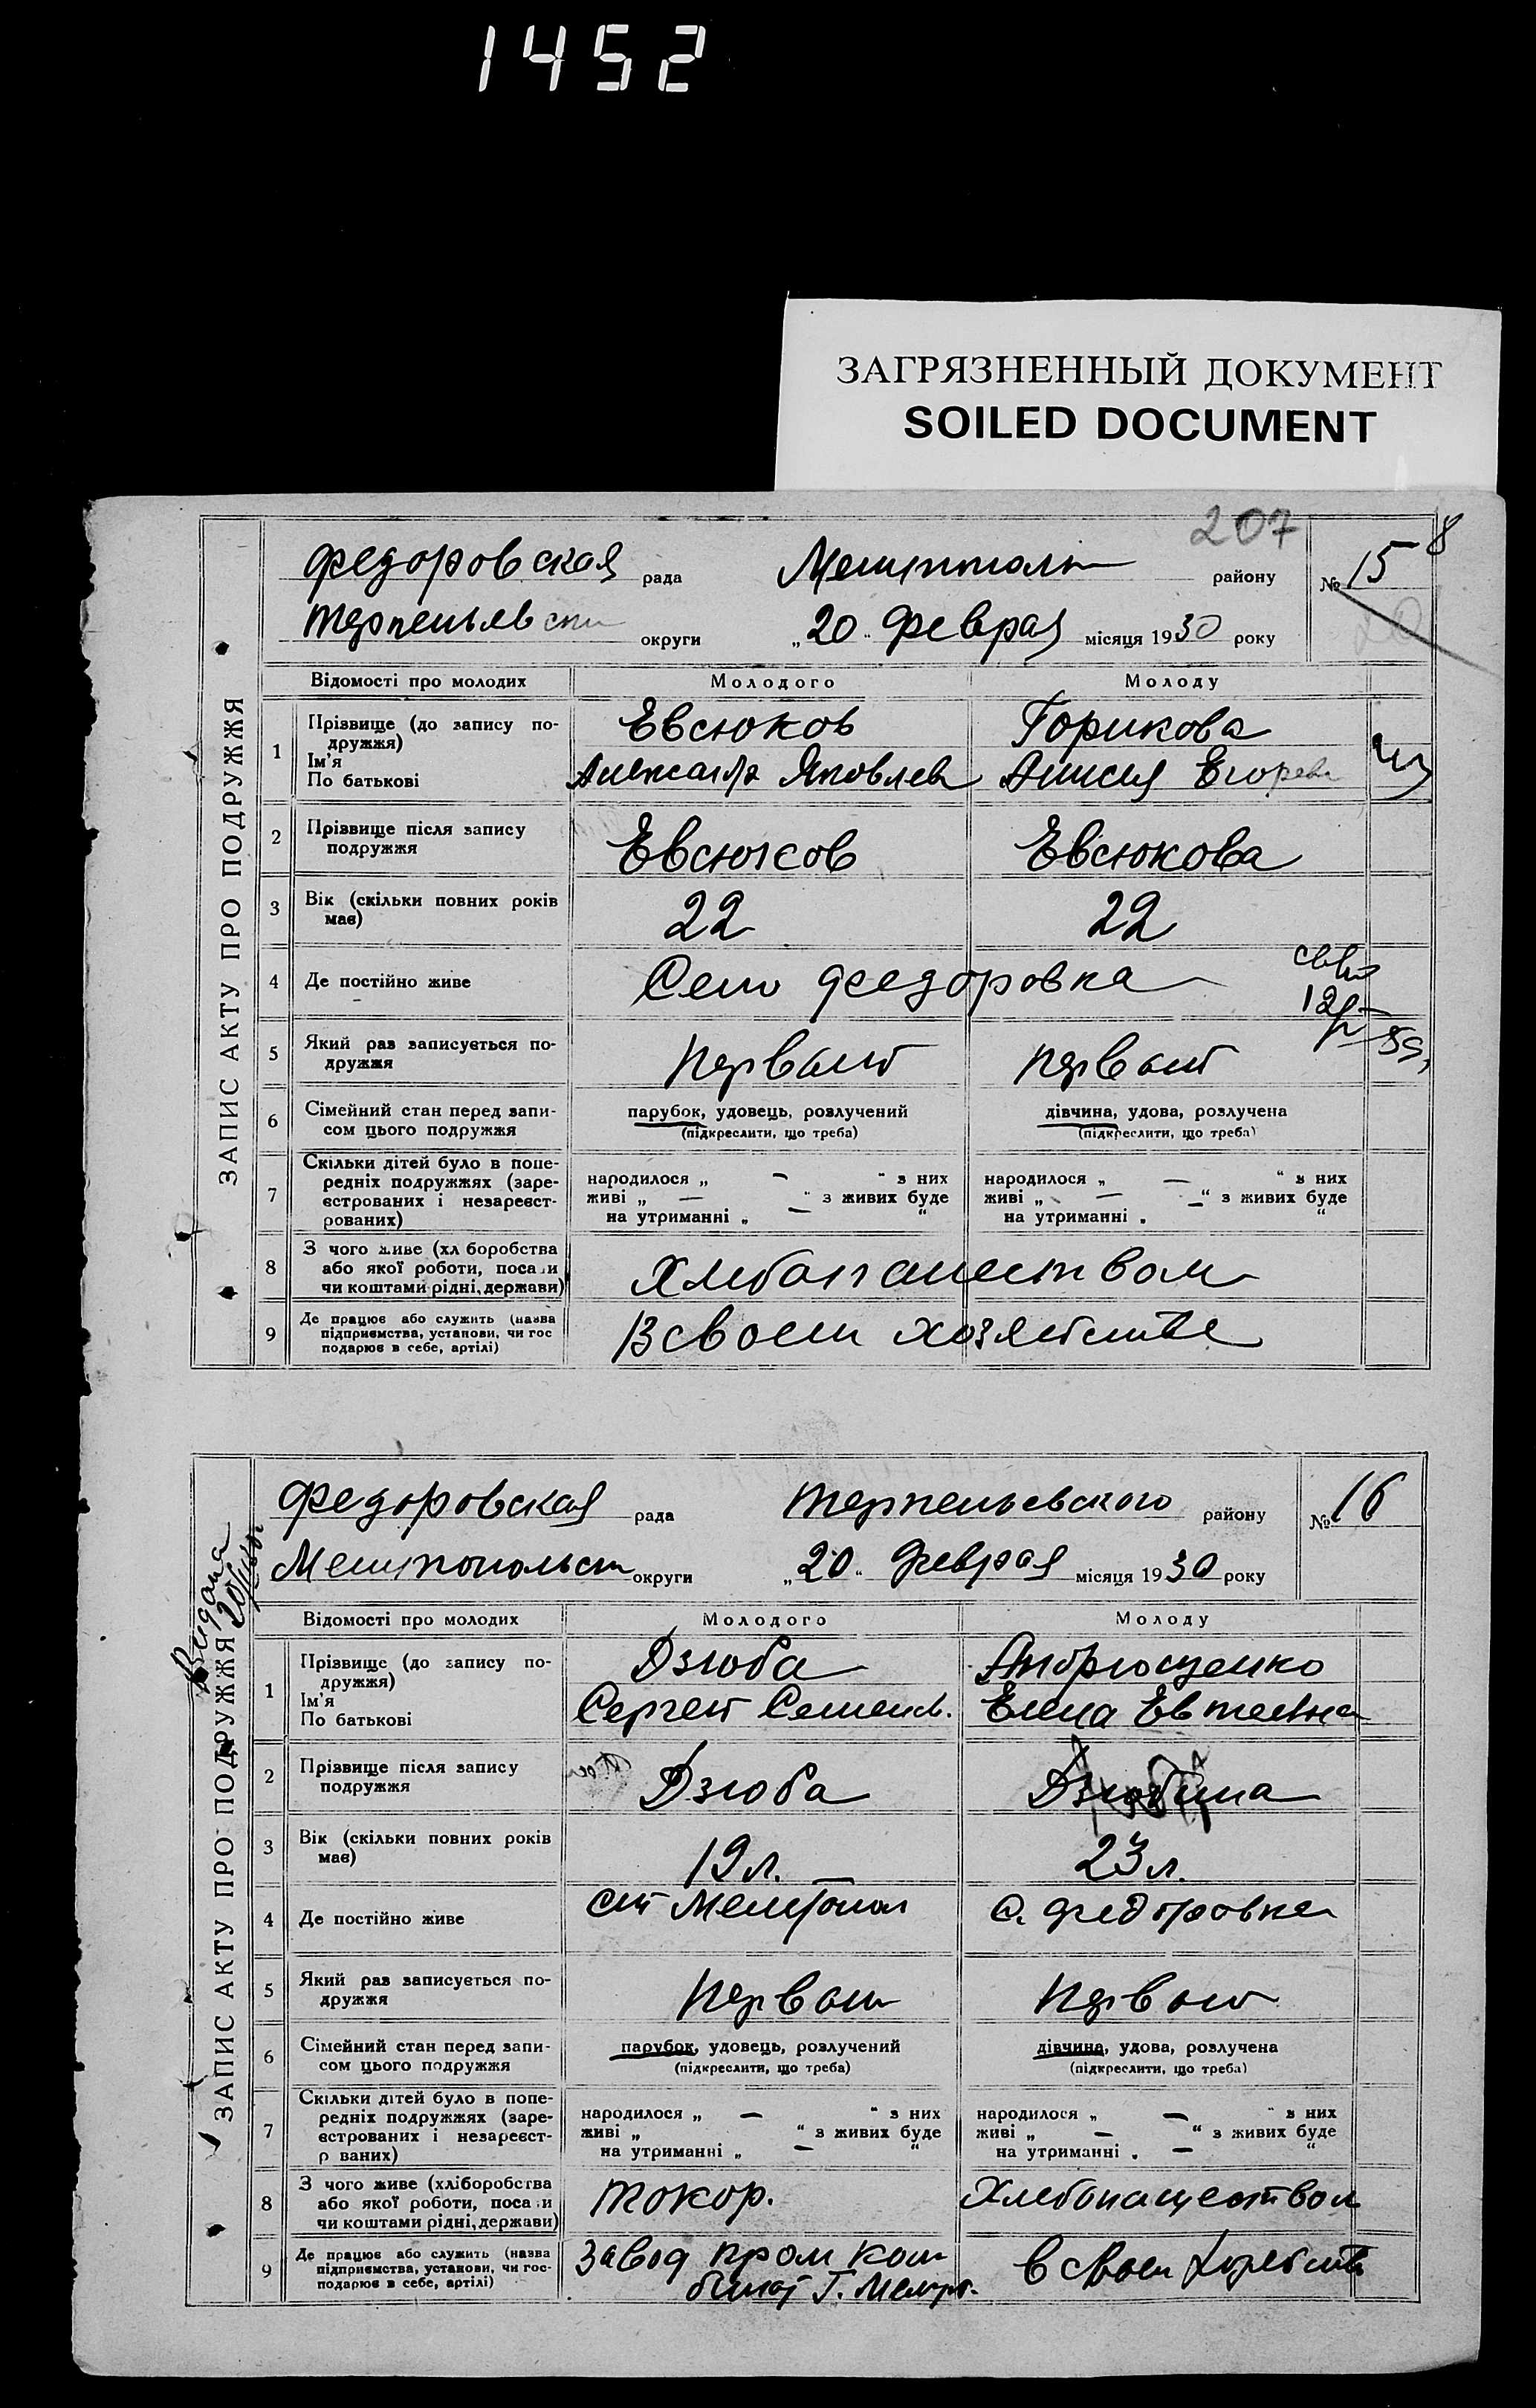 1452
ЗАГРЯЗНЕННЫЙ ДОКУМЕНТ
SOILED DOCUMENT
207
8
ЗАПИС АКТУ ПРО ПОДРУЖЖЯ
Федоровская рада районy № 15
округи „20" Февраля місяця 1930 року
Відомості про молодих Молодого Молоду
1 Прізвище (до запису по- Евсюков Горикова
дружжя)
Ім'я Александр Яковлев Анисия Егорева
По батькові
2 Прізвище після запису Евсюков Евсюкова
подружжя
3 Вік (скільки повних років 22 22
має)
4 Де постійно живе Село Федоровка
5 Який раз записується по- первый первый
дружжя
6 Сімейний стан перед запи- парубок, удовець, розлучений дівчина, удова, розлучена
сом цього подружжя (підкреслити, що треба) (підкреслити, що треба)
7 Скільки дітей було в попе- народилося „ — " з них народилося „ — " з них
редніх подружжях (заре- живі „ — " з живих буде живі „ — " з живих буде
єстрованих і незареєст- на утриманні „ — " на утриманні „ — "
рованих)
8 З чого живе (хл боробства Хлебопашеством
або якої роботи, посади
чи коштами рідні, держави)
9 Де працює або служить (назва В своем хозяйстве
підприємства, установи, чи гос
подарює в себе, артілі)
ЗАПИС АКТУ ПРО ПОДРУЖЖЯ
Видана
Федоровская рада Терпеньевского району № 16
Мелитопольск округи „20" Февраля місяця 1930 року
Відомості про молодих Молодого Молоду
1 Прізвище (до запису по- Дзюба Андрющенко
дружжя)
Ім'я Сергей Семенов. Елена
По батькові
2 Прізвище після запису Дзюба Дзюбина
подружжя
3 Вік (скільки повних років 19 л. 23 л.
має)
4 Де постійно живе с. Федоровка
5 Який раз записується по- первый первый
дружжя
6 Сімейний стан перед запи- парубок, удовець, розлучений дівчина, удова, розлучена
сом цього подружжя (підкреслити, що треба) (підкреслити, що треба)
7 Скільки дітей було в попе- народилося „ — " з них народилося „ — " з них
редніх подружжях (заре- живі „ " з живих буде живі „ — " з живих буде
єстрованих і незареєст- на утриманні „ — " на утриманні „ — "
р ваних)
8 З чого живе (хліборобства Токор. Хлебопашеством
або якої роботи, посади
чи коштами рідні, держави)
9 Де працює або служить (назва Завод пром ком- в своем
підприємства, установи, чи гос- бинат Г.
подарює в себе, артілі)